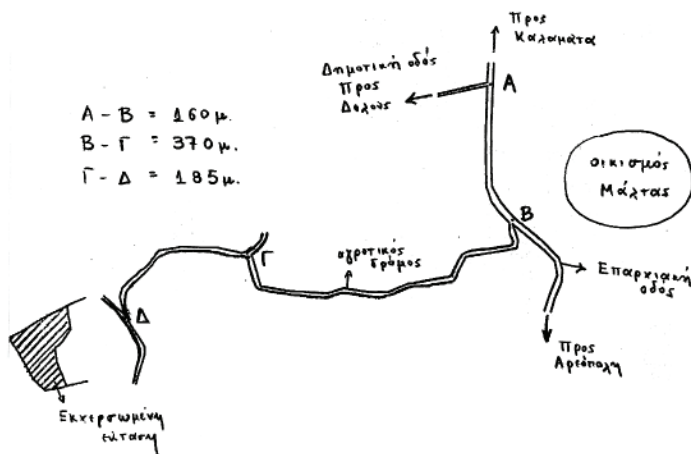 Προς
Καλαμάτα
Δημοτική οδός
Προς
Δολούς
Α
Α - Β = 160 μ.
Β - Γ = 370 μ.
Γ - Δ = 185 μ.
οικισμός
Μάλτας
Β
Γ
αγροτικός
δρόμος
Επαρχιακή
οδός
Δ
Προς
Αρεόπολη
Εκχερσωμένη
έκταση